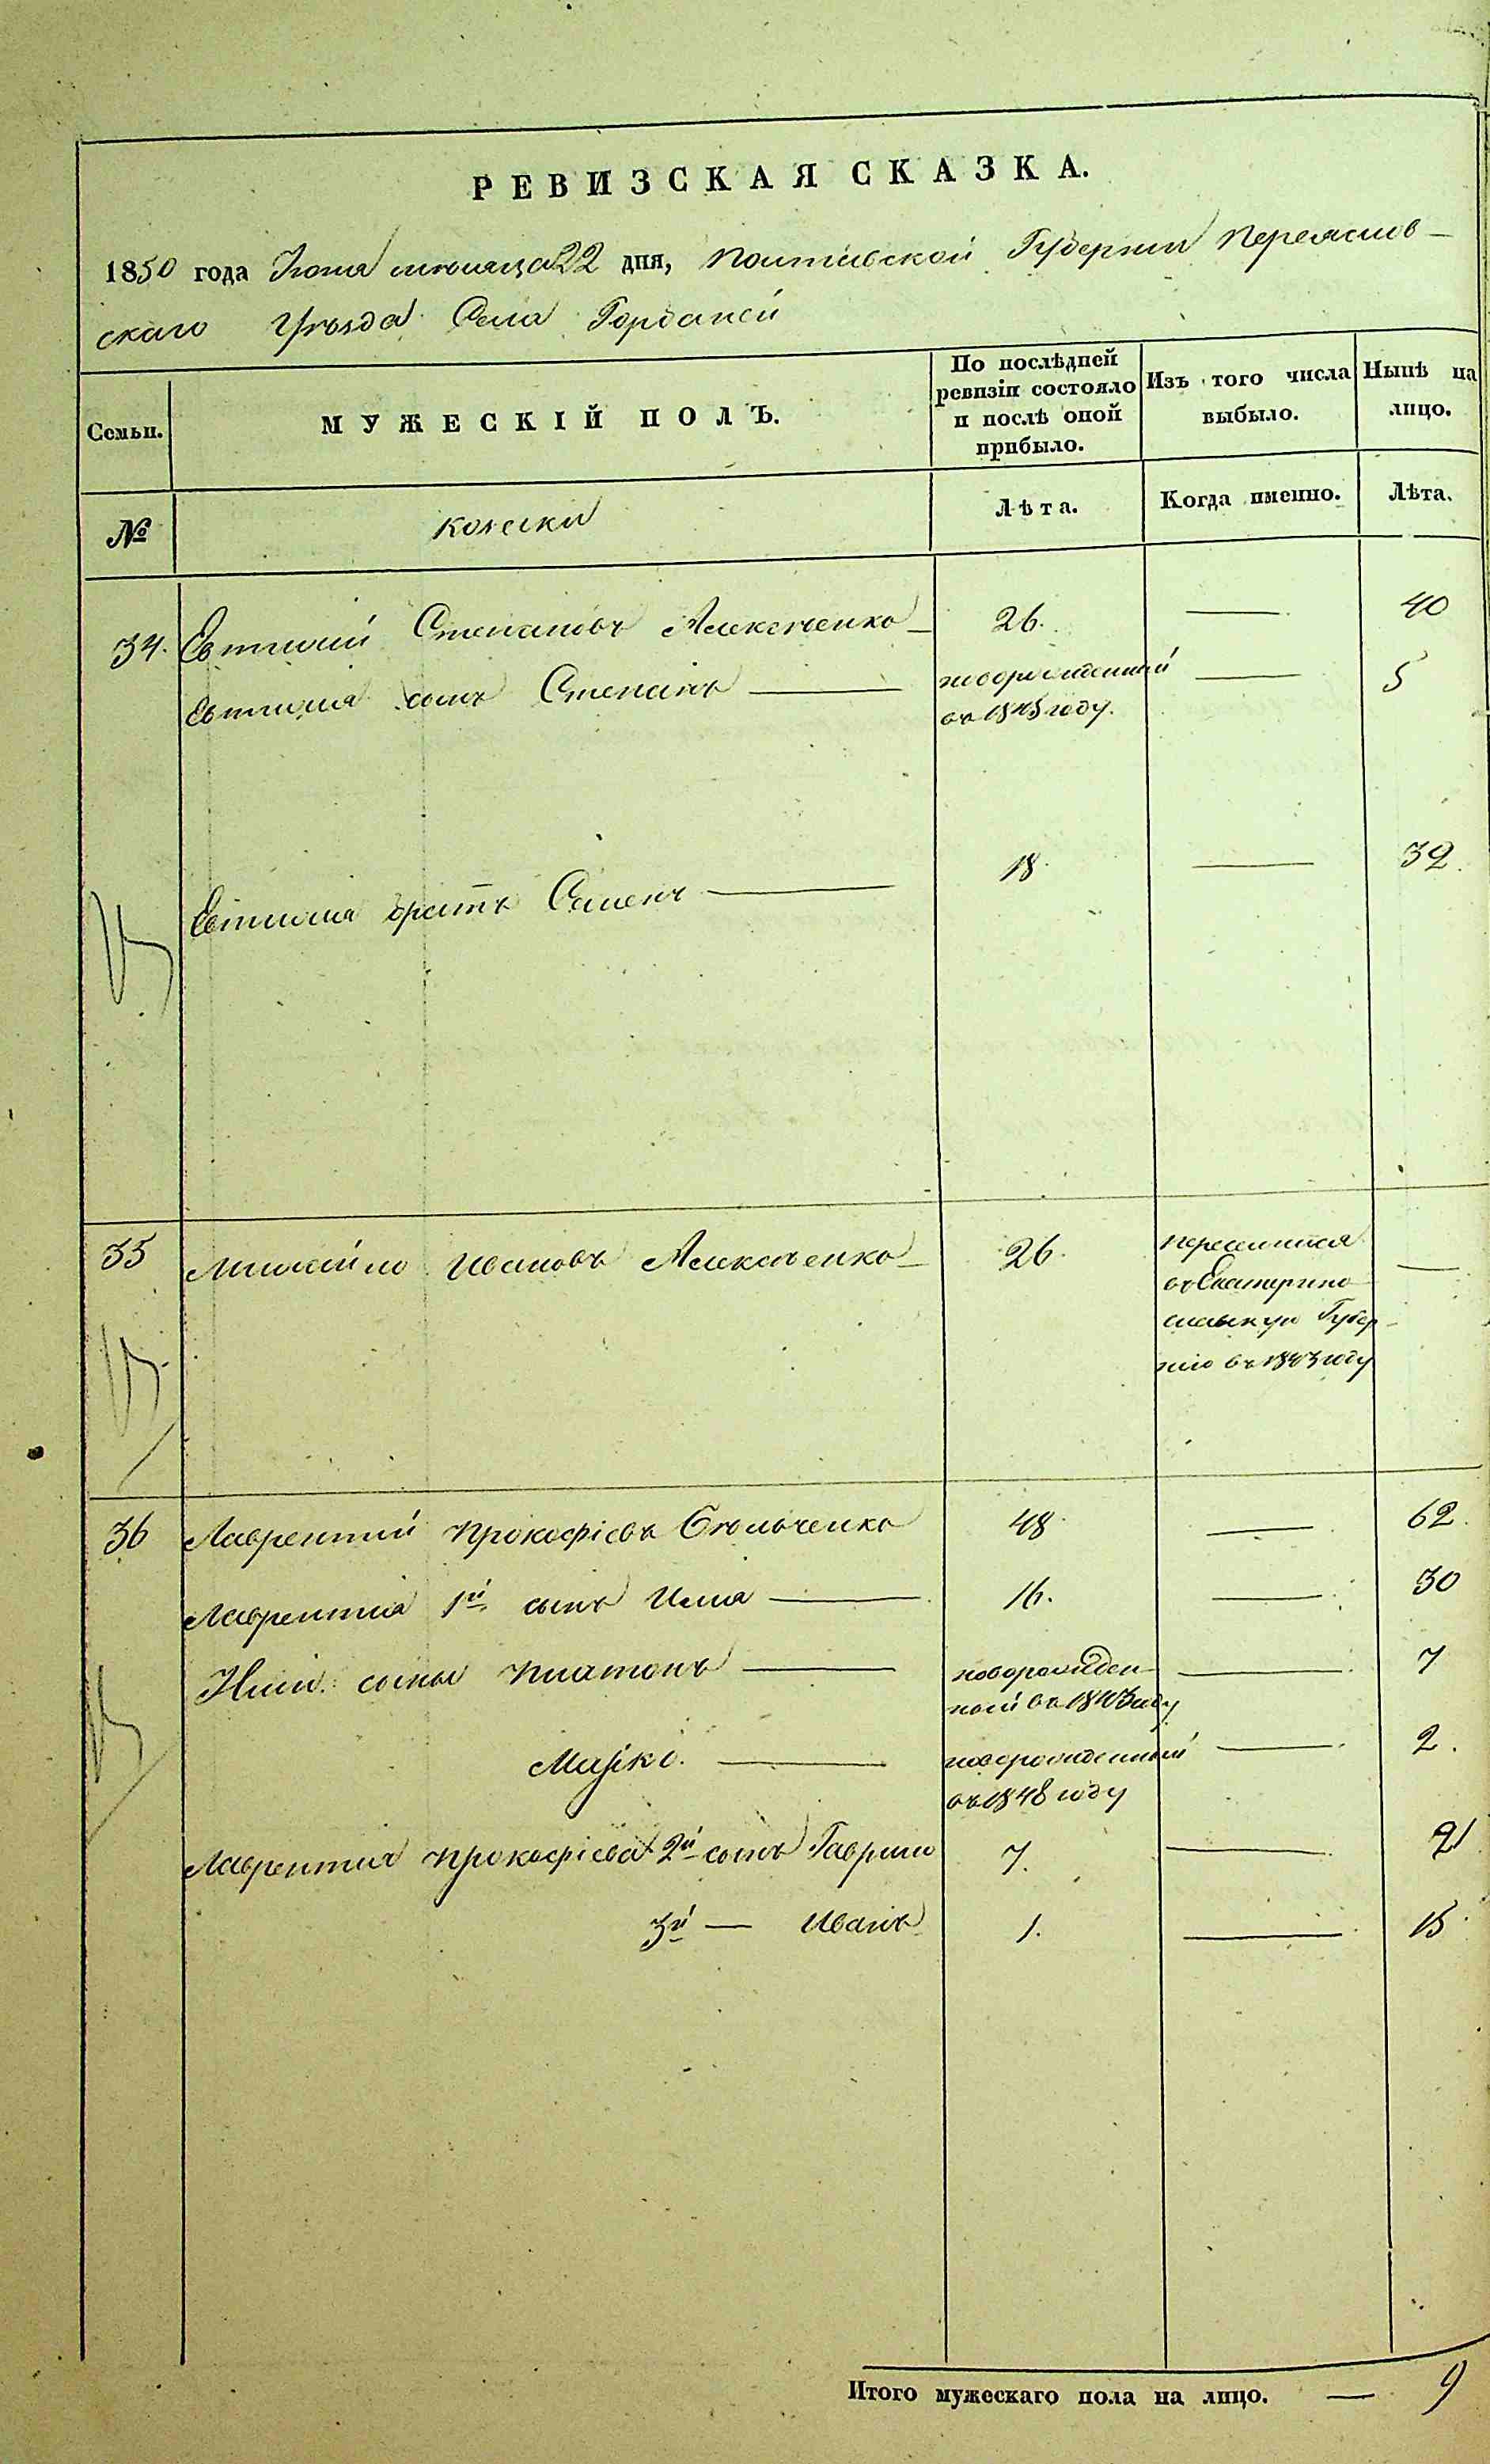 РЕВИЗСКАЯ СКАЗКА.
1850 года Іюня мѣсяца 22 дня, Полтавской Губерніи Переяслов-
скаго Уѣзда Села Горбаней
Семьи.
МУЖЕСКІЙ ПОЛЪ.
По послѣдней ревизіи состояло и послѣ оной прибыло.
Изъ того числа выбыло.
Нынѣ на лицо.
№
козаки
Лѣта.
Когда именно.
Лѣта.
34. Евтихий Степановъ Алексѣенко 26. — 40
Евтихія сынъ Степанъ — новорожденный — 5
въ 1845 году.
Евтихія братъ Семенъ — 18. — 32.
35 Михайло Ивановъ Алексѣенко 26. переселился —
въ Екатерино
славскую Губер-
нію въ 1843 году
36 Лаврентий Прокофіевъ 48. — 62.
Лаврентія 1й сынъ Илія — 16. — 30
Иліи сыны Платонъ — новорожден- — 7
ный въ 1843 году
Марко. — новорожденный — 2.
въ 1848 году
Лаврентія Прокофіева 2й сынъ Гаврило 7. — 21
3й — Иванъ 1. — 15.
Итого мужескаго пола на лицо. — 9